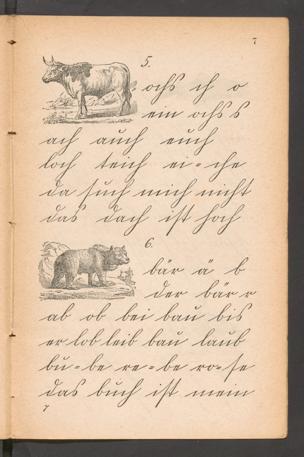 7
5.
ochs ch o
ein ochs s
ach auch euch
loch teich ei-che
da such mich nicht
das dach ist hoch
6.
bär ä b
der bär r
ab ob bei bau bis
er lob leib bau laub
bu-be re-be ro-se
das buch ist mein
7